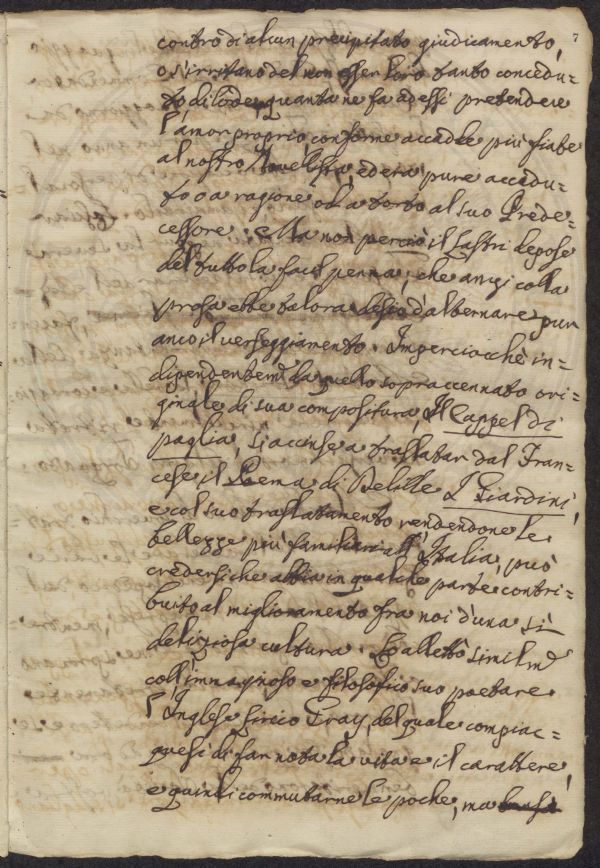 contro di alcun precipitato giudicamento,
o s'irritano del non esser loro tanto concedu=
to di lode, quanta ne fa ad essi pretendere
l'amor proprio conforme accadde più fiate
al nostro Novellista, ed era pure accadu=
to o a ragione od a torto al suo Prede=
cessore. Ma non perciò il Lastri depose
del tutto la facil penna, che anzi colla
prosa ebbe talora desio d'alternare pur
anco il verseggiamento. Imperciocchè in=
dipendentem.e da quello sopraccennato ori=
ginale di sua compositura, Il Cappel di
paglia, si accinse a traslatar dal Fran=
cese il Poema di Delille I Giardini,
e col suo traslatamento rendendone le
bellezze più familiari all'Italia, può
credersi che abbia in qualche parte contri=
buito al miglioramento fra noi d'una sì
deliziosa cultura. Lo allettò similm.e
coll'immaginoso e filosofico suo poetare
l'Inglese Lirico Gray, del quale compiac=
quesi di far nota la vita e il carattere,
e quindi commutarne le poche, ma